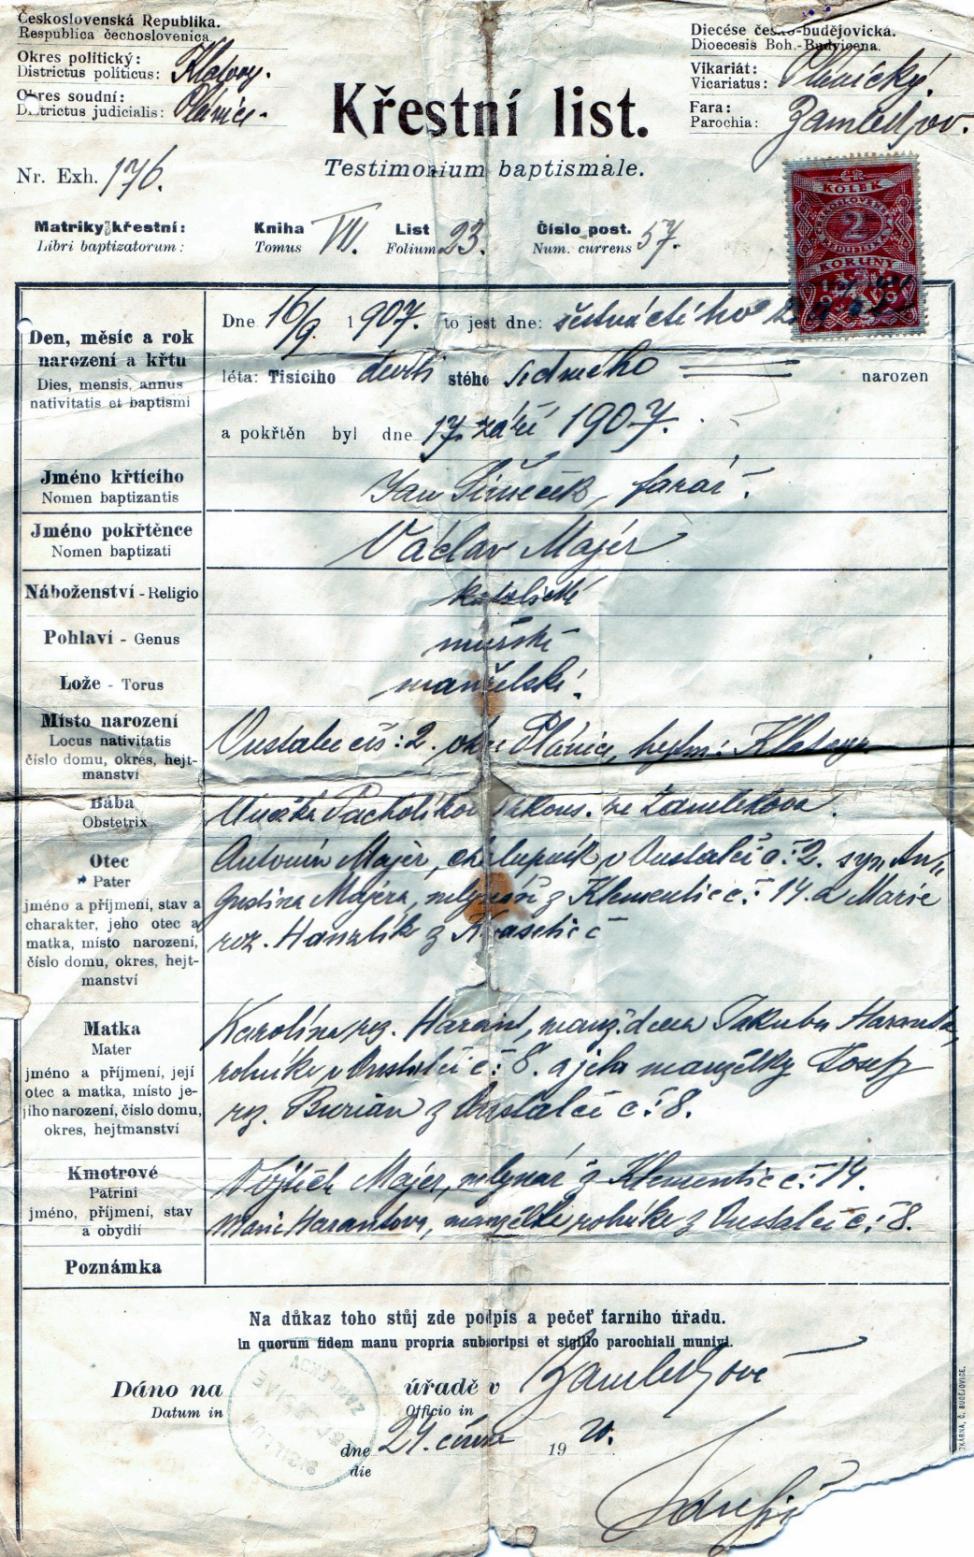 Československá Republika.
Respublica čechoslovenica
Okres politický:
Districtus politicus: Klatovy.
Okres soudní:
Districtus judicialis: Plánice.
Diecése česko-budějovická.
Dioecesis Boh.-Budvicena.
Vikariát:
Vicariatus: Plánický.
Fara:
Parochia:
Křestní list.
Testimonium baptismale.
Nr. Exh. 176.
KOLEK
2
KORUNY
Matriky křestní: Kniha VII. List 23. Číslo post. 57.
Libri baptizatorum: Tomus Folium Num. currens
Den, měsíc a rok
narození a křtu
Dies, mensis, annus
nativitatis et baptismi
Dne 16/9. 1907. to jest dne: šestnáctého
léta: Tisícího devíti stého sedmého narozen
a pokřtěn byl dne 17. září 1907.
Jméno křtícího
Nomen baptizantis
Jan farář.
Jméno pokřtěnce
Nomen baptizati
Václav Majer
Náboženství - Religio
katolické
Pohlaví - Genus
mužské
Lože - Torus
manželské.
Místo narození
Locus nativitatis
číslo domu, okres, hejt-
manství
čís: 2. okr. Plánice, hejtm: Klatovy
Bába
Obstetrix
ze
Otec
Pater
jméno a příjmení, stav a
charakter, jeho otec a
matka, místo narození,
číslo domu, okres, hejt-
manství
Antonín Majer, chalupník v č: 2. syn
Majera, z Klementic č: 14. a Marie
roz. Hanzlík z
Matka
Mater
jméno a příjmení, její
otec a matka, místo je-
jího narození, číslo domu,
okres, hejtmanství
Karolina roz. Harant, manž. dcera Jakuba Haranta,
rolníka v č: 8. a jeho manželky Josefy
roz. Burian z č: 8.
Kmotrové
Patrini
jméno, příjmení, stav
a obydlí
Vojtěch Majer, mlynář z Klementic č: 14.
Marie Harantova, manželka rolníka z č: 8.
Poznámka
Na důkaz toho stůj zde podpis a pečeť farního úřadu.
In quorum fidem manu propria subscripsi et sigillo parochiali munivi.
Dáno na úřadě v
Datum in Officio in
dne 24. června 19 20.
die